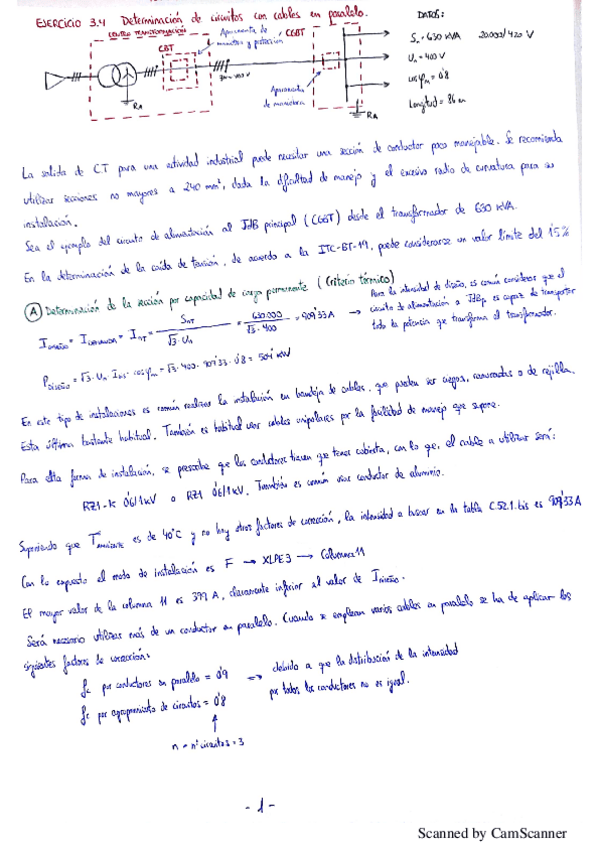 EJERCICIO 3.4 Determinación de circuitos con cables en paralelo.
DATOS:
CENTRO TRANSFORMACIÓN
CBT
Aparamenta de maniobra y protección
CGBT
Aparamenta de maniobra
RA
RA
Sn = 630 KVA 20.000/420 V
Un = 400 V
cos φm = 0'8
Longitud = 86 m
La salida de CT para una actividad industrial puede necesitar una sección de conductor poco manejable. Se recomienda
utilizar secciones no mayores a 240 mm², dada la dificultad de manejo y el excesivo radio de curvatura para su
instalación.
Sea el ejemplo del circuito de alimentación al principal (CGBT) desde el transformador de 630 KVA.
En la determinación de la caída de tensión, de acuerdo a la ITC-BT-19, puede considerarse un valor límite del 1'5%
A Determinación de la sección por capacidad de carga permanente (Criterio térmico)
I DISEÑO = I = I NT = SNT / √3 · Un = 630.000 / √3 · 400 = 909'33 A → Para la intensidad de diseño, es común considerar que el
circuito de alimentación a es capaz de transportar
toda la potencia que transforma el transformador.
P DISEÑO = √3 · Un · I · cos φm = √3 · 400 · 909'33 · 0'8 = 504 kW
En este tipo de instalaciones es común realizar la instalación en bandeja de cables, que pueden ser ciegas, ranuradas o de rejilla.
Esta última bastante habitual. También es habitual usar cables unipolares por la facilidad de manejo que supone.
Para esta forma de instalación, se prescribe que los conductores tienen que tener cubierta, con lo que, el cable a utilizar será:
RZ1-K 0'6/1kV o RZ1 0'6/1kV. También es común usar conductor de aluminio.
Suponiendo que T ambiente es de 40°C y no hay otros factores de corrección, la intensidad a buscar en la tabla C.52.1.bis es 909'33 A
Con lo expuesto el modo de instalación es F → XLPE3 → Columna 11
El mayor valor de la columna 11 es A, claramente inferior al valor de I DISEÑO.
Será necesario utilizar más de un conductor en paralelo. Cuando se emplean varios cables en paralelo se ha de aplicar los
siguientes factores de corrección:
fc por conductores en paralelo = 0'9 → debido a que la distribución de la intensidad
por todos los conductores no es igual.
fc por agrupamiento de circuitos = 0'8
n = nº circuitos = 3
- 1 -
Scanned by CamScanner